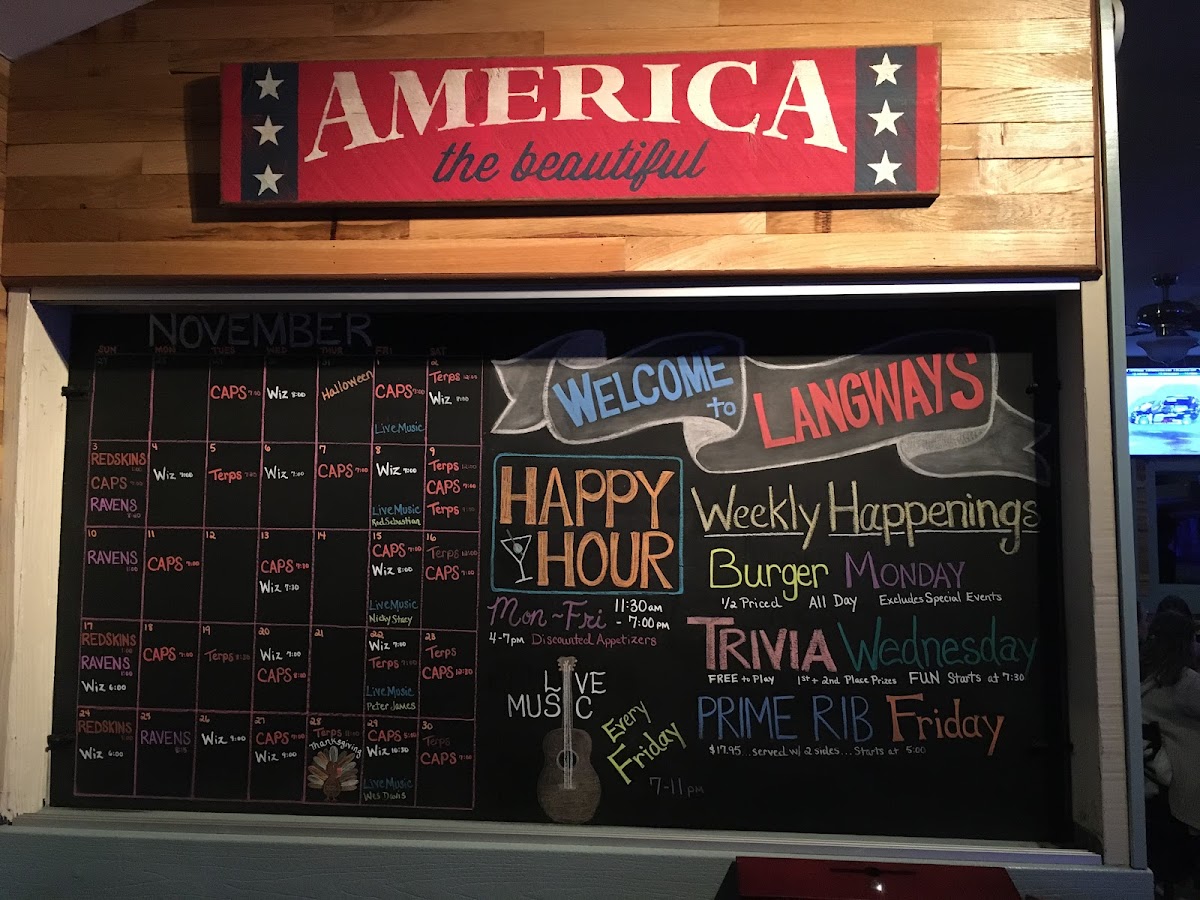 AMERICA
the beautiful
NOVEMBER
SUN MON TUES WED THUR FRI SAT
CAPS 7:00
Wiz 8:00
Halloween
1
CAPS 7:00
Live Music
2
Terps 12:00
Wiz 8:00
3
REDSKINS 1:00
CAPS 7:00
RAVENS
4
Wiz 7:00
5
Terps
6
Wiz 7:00
7
CAPS 7:00
8
Wiz 7:00
Live Music
Rod Sebastian
9
Terps 12:00
CAPS 7:00
Terps
10
RAVENS 1:00
11
CAPS 7:00
12
13
CAPS
Wiz 7:30
14
15
CAPS 7:00
Wiz 8:00
Live Music
Nicky Stacy
16
Terps
CAPS 7:00
17
REDSKINS 1:00
RAVENS 1:00
Wiz 6:00
18
CAPS 7:00
19
Terps
20
Wiz 7:00
CAPS
21
22
Wiz 7:00
Terps
Live Music
Peter James
23
Terps
CAPS
24
REDSKINS 1:00
Wiz 6:00
25
RAVENS
26
Wiz 9:00
27
CAPS 7:00
Wiz 9:00
28
Terps
Thanksgiving
29
CAPS
Wiz 10:30
Live Music
Wes Davis
30
Terps
CAPS 7:00
WELCOME
to LANGWAYS
HAPPY
HOUR
Mon~Fri 11:30am - 7:00pm
4-7pm Discounted Appetizers
LIVE
MUSIC
Every
Friday
7-11pm
Weekly Happenings
Burger MONDAY
1/2 Priced All Day Excludes Special Events
TRIVIA Wednesday
FREE to Play 1st + 2nd Place Prizes FUN Starts at 7:30
PRIME RIB Friday
$17.95...served w/ 2 sides...Starts at 5:00